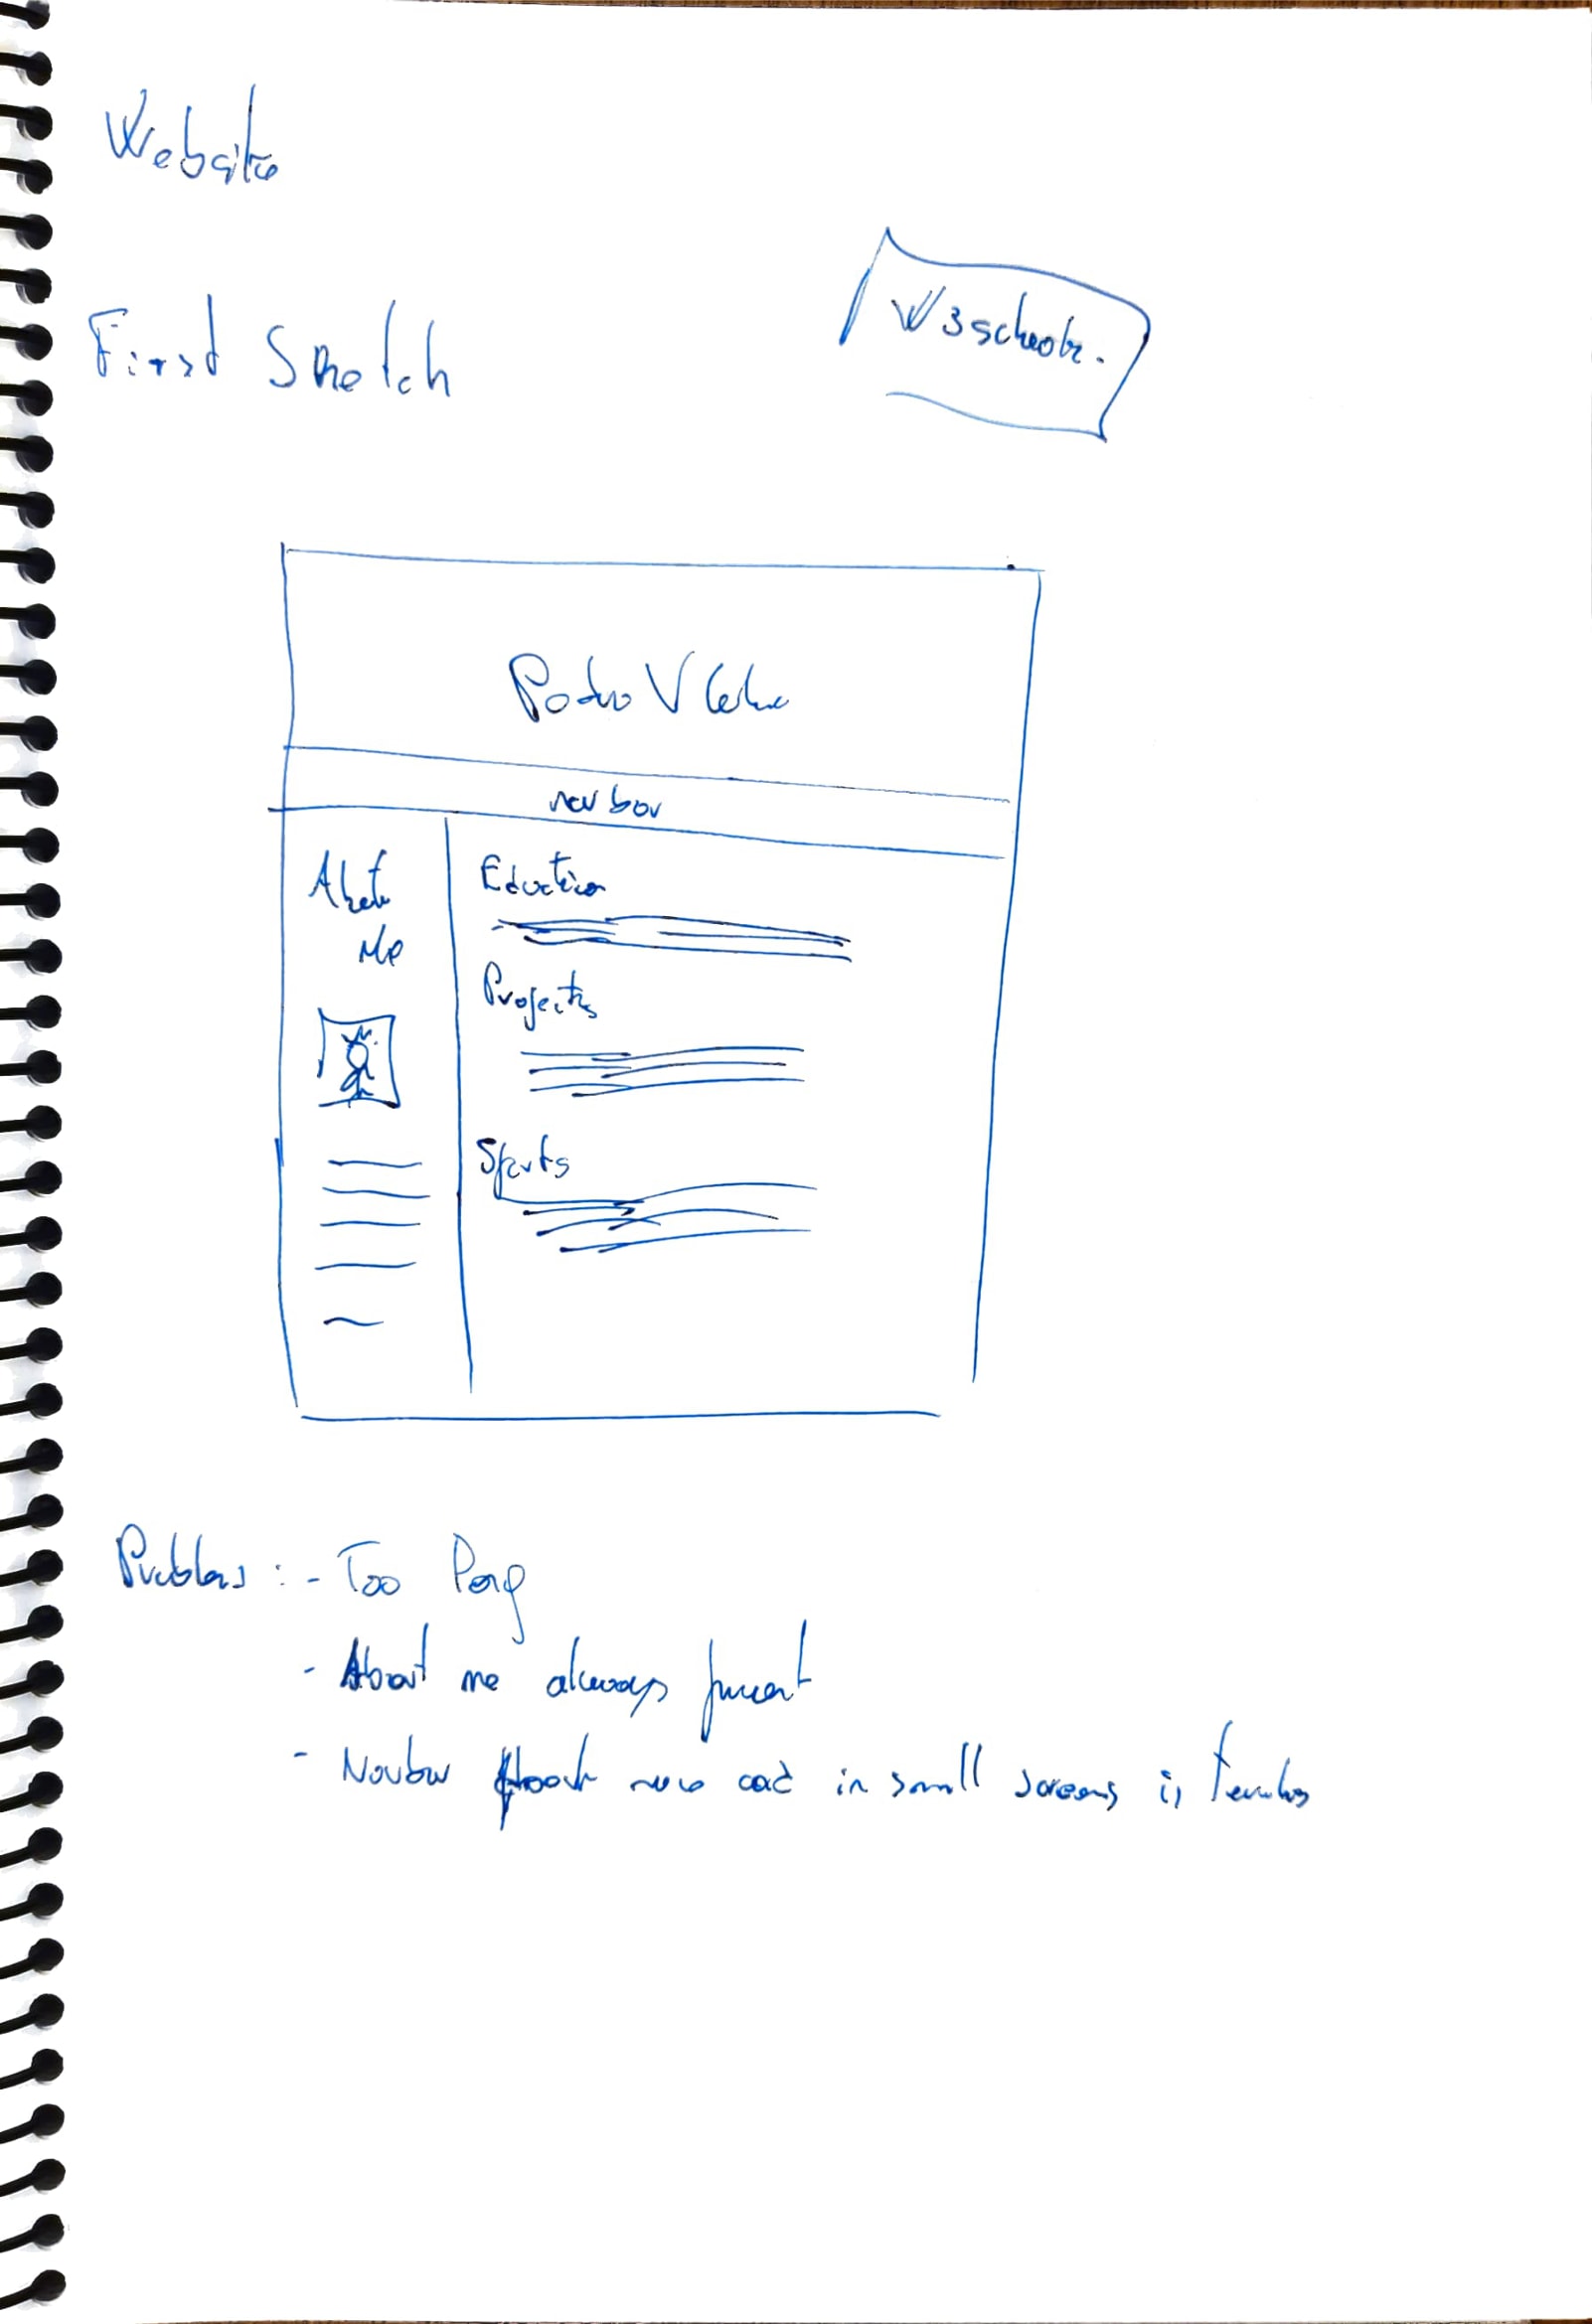 Website
W3schools.
First Sketch
Pedro
nav bar
About
Me
Education
Projects
Sports
Problems : - Too Long
- About me always present
- Navbar in small screens is